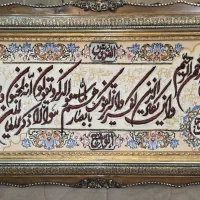 وان یکاد الذین کفروا لیزلقونک بابصارهم لما سمعوا الذکر و یقولون انه لمجنون و ما هو الا ذکر للعالمین